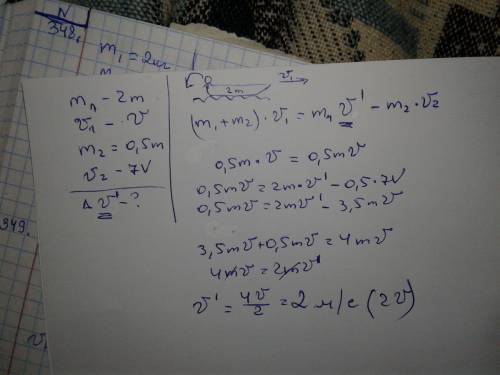 N
348.
m₁ = 2кг
349.
m₁ - 2m
v₁ - v
m₂ = 0,5m
v₂ - 7v
Δ v' - ?
2m
v₁
(m₁ + m₂) · v₁ = m₁ v' - m₂ · v₂
0,5m · v = 0,5mv
0,5mv = 2m · v' - 0,5 · 7v
0,5mv = 2mv' - 3,5mv
3,5mv + 0,5mv = 4mv
4mv = 2mv'
v' = 4v/2 = 2 м/с (2v)